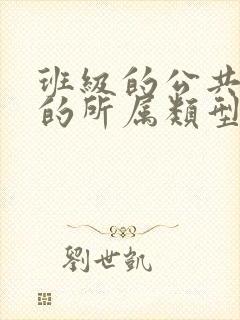 班級的公共
的所属類型
劉世凱